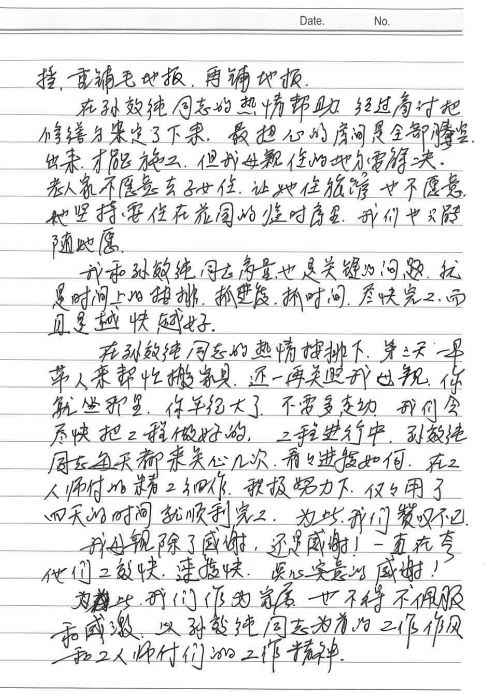 Date. No.
撞,重铺毛地板,再铺地板.
在孙效纯同志的热情帮助 经过商讨把
修缮方案定了下来. 最担心的房间是全部腾空
出来,才能施工,但我母亲住的地方需解决.
老人家不愿意去子女住,让她住旅馆也不愿意.
她坚持要住在花园的临时房里,我们也只能
随她愿.
我和孙效纯同志商量也是关键的问题,就
是时间上的安排,抓进度,抓时间,尽快完工.而
且是越快越好.
在孙效纯同志的热情安排下,第二天一早
带人来帮忙搬家具,还一再关照我母亲,你
就坐那里,你年纪大了,不需多走动 我们会
尽快把工程做好的. 工程进行中,孙效纯
同志每天都来关心几次,看看进程如何,在工
人师付的精工细作,积极努力下,仅仅用了
四天的时间就顺利完工. 为此,我们赞叹不已.
我母亲除了感谢,还是感谢!一直在夸
他们工效快,速度快,真心实意的感谢!
为此,我们作为家属 也不得不佩服
和感激,以孙效纯同志为首的工作作风
和工人师付们的工作精神.